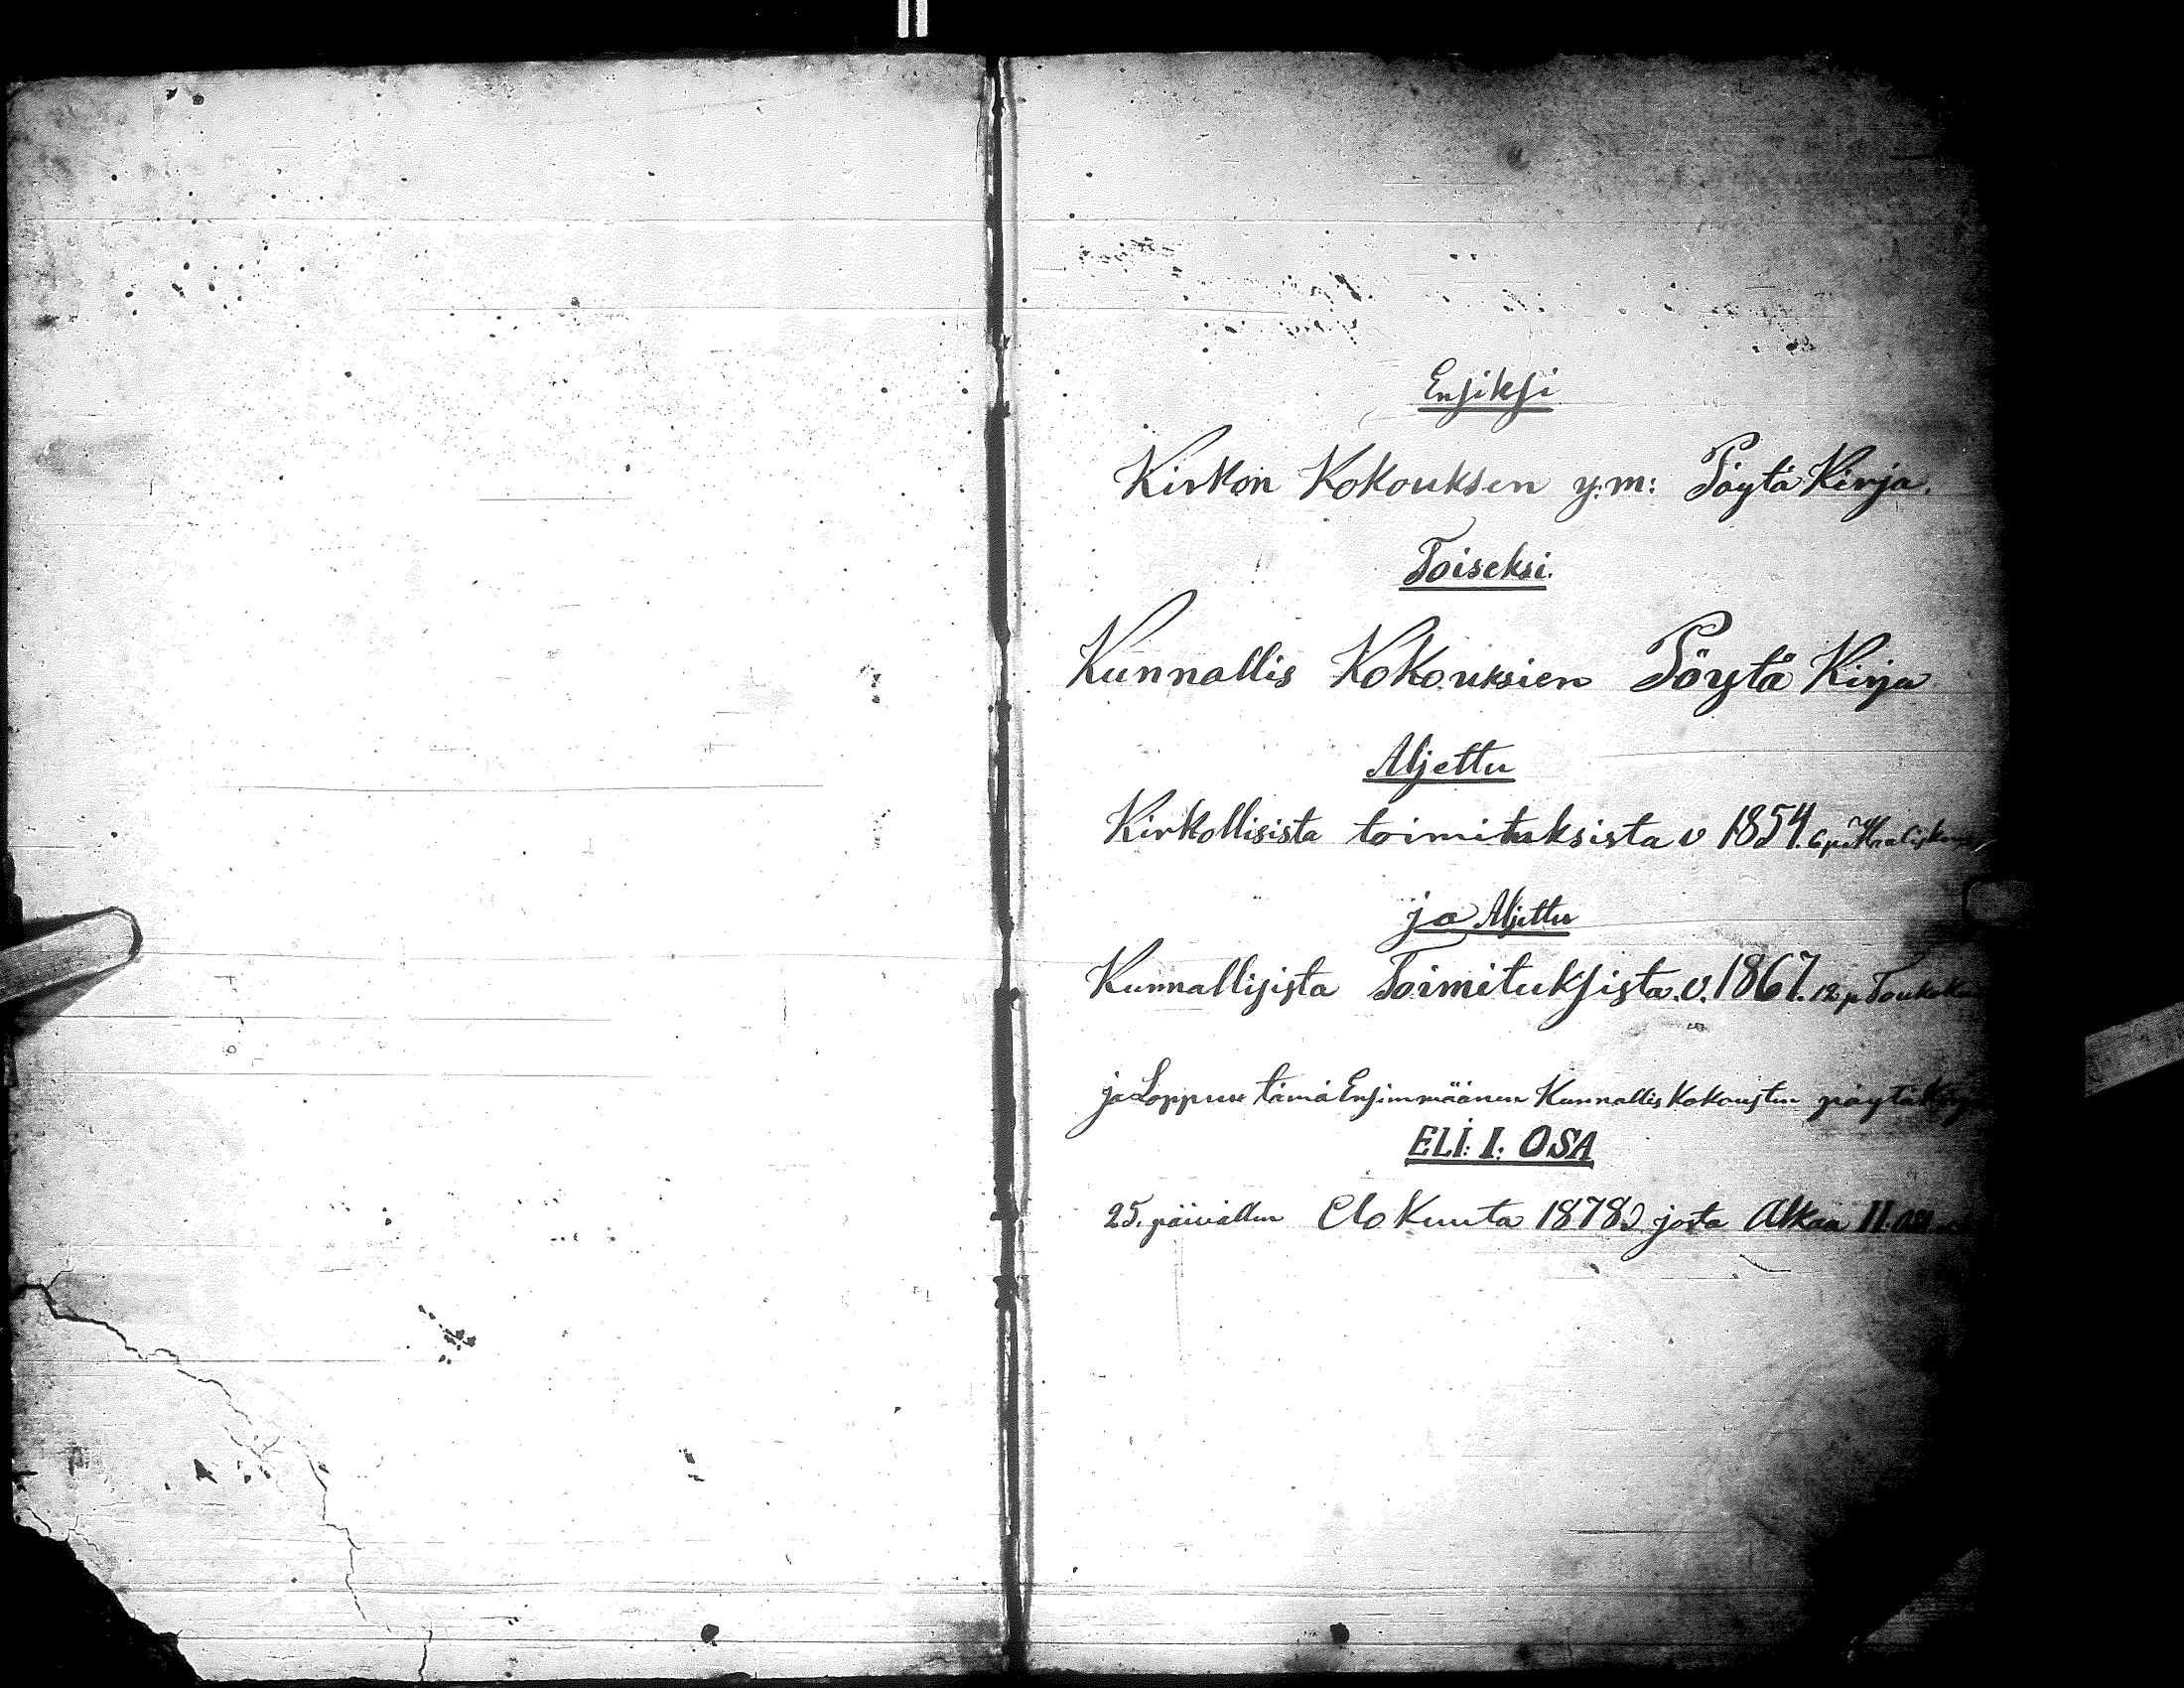 Ensiksi
Kirkon Kokouksen y:m: Pöytä Kirja.
Toiseksi.
Kunnallis Kokouksien Pöytä Kirja
Aljettu
Kirkollisista toimituksista v 1854. 6 p. Maaliskuu
ja Aljettu
Kunnallisista Toimituksista v. 1867. 12 p Toukoku
ja Loppuu tämä Ensimmäänen Kunnallis Kokousten pöytäkirja
ELI: I: OSA
25. päivällen Elo Kuuta 1878 josta Alkaa II. osa